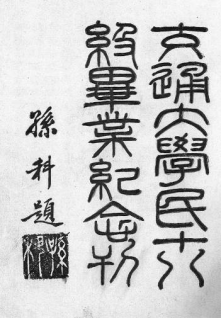 交通大學民十八
級畢業紀念刊
孫科題